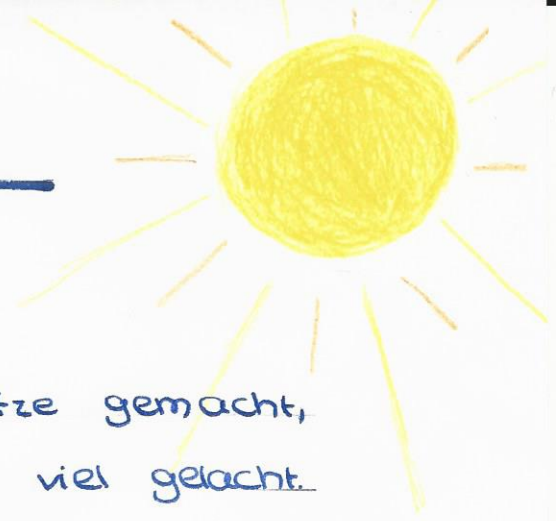 tze gemacht,
viel gelacht.